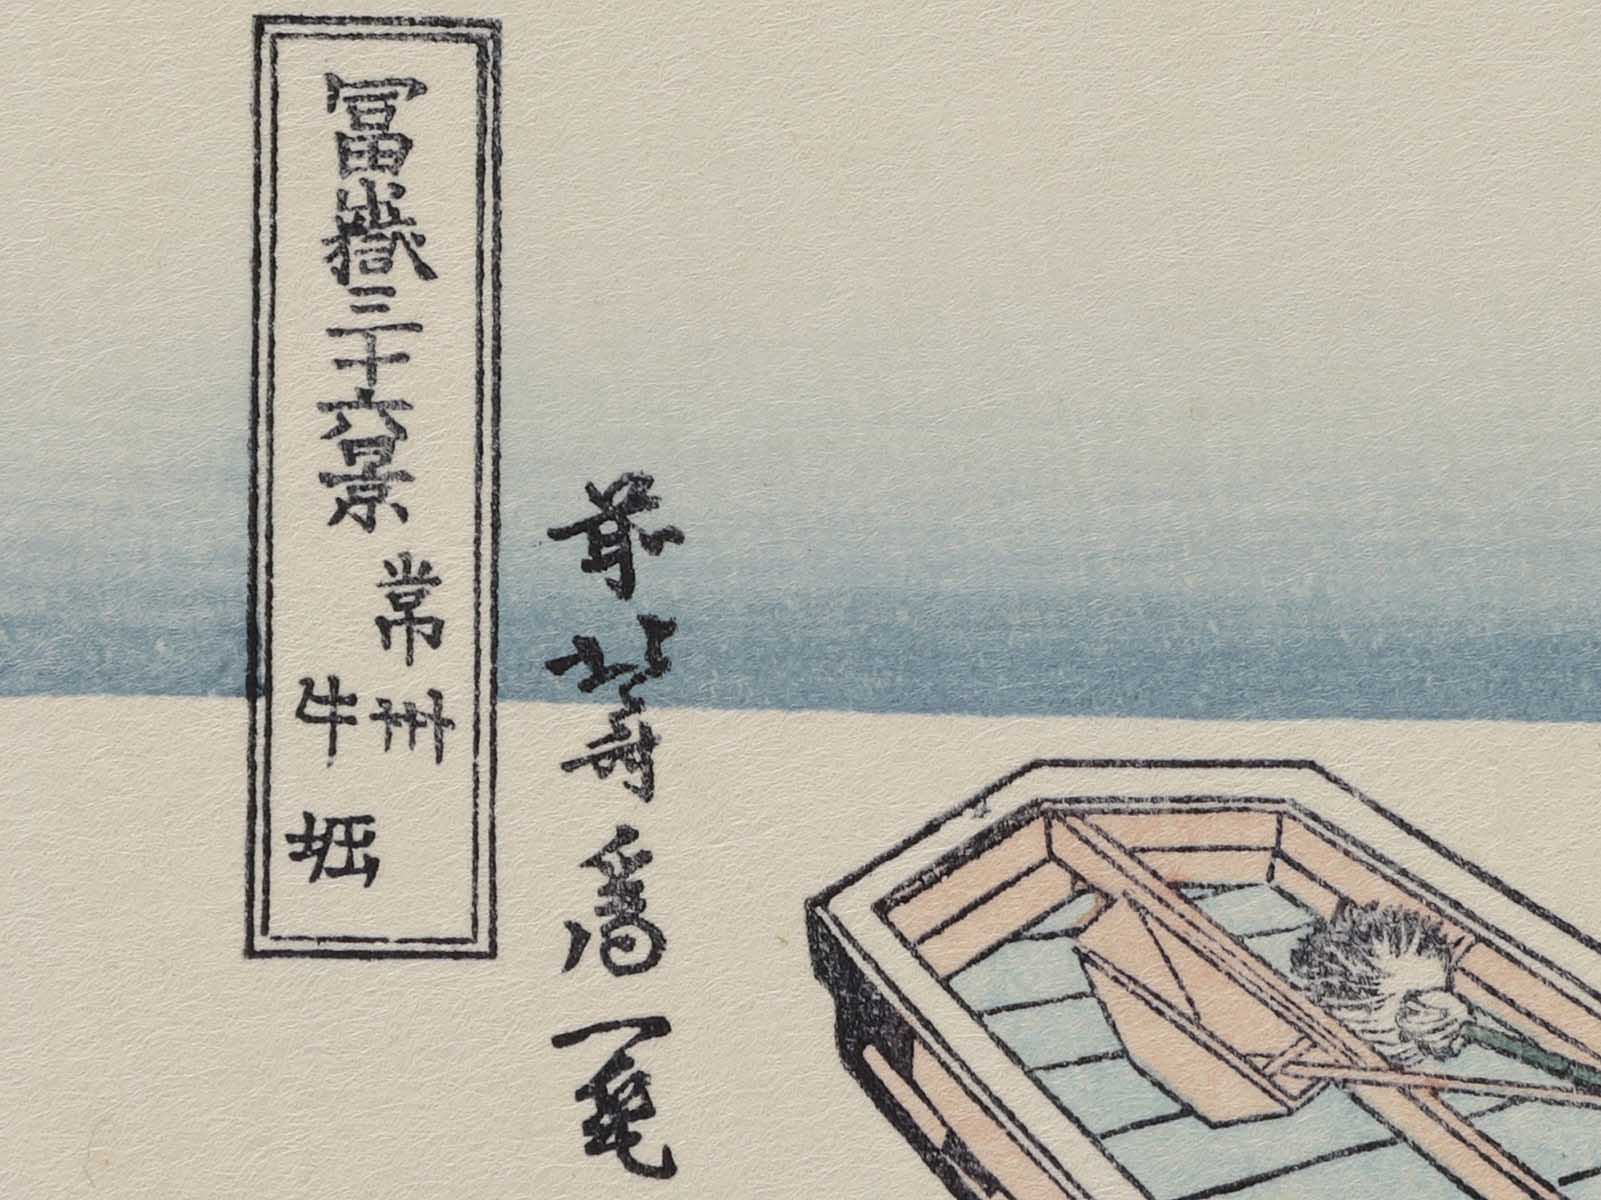 冨嶽三十六景
常州
牛堀
前北斎為一筆